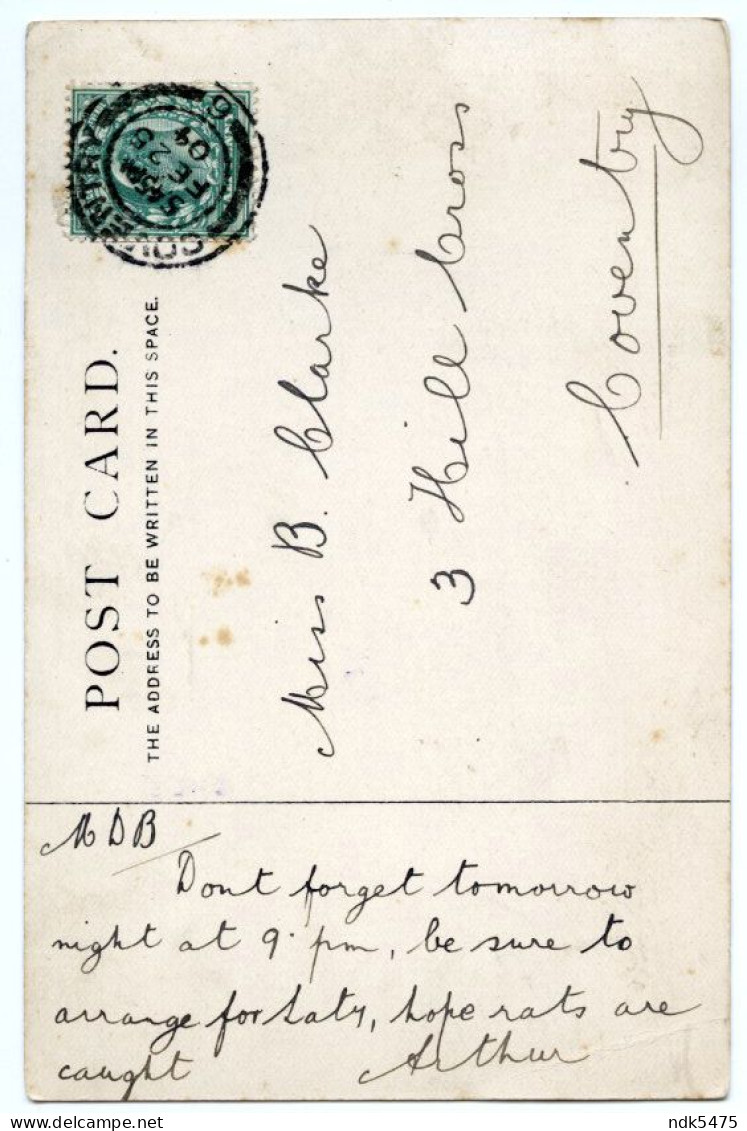 POST CARD.
THE ADDRESS TO BE WRITTEN IN THIS SPACE.
COVENTRY
5 45 PM
FE 25
04
6
Miss B. Clarke
3 Hill Cross
Coventry
MDB
Dont forget tomorrow
night at 9. pm, be sure to
arrange for Saty, hope rats are
caught Arthur
ndk5475